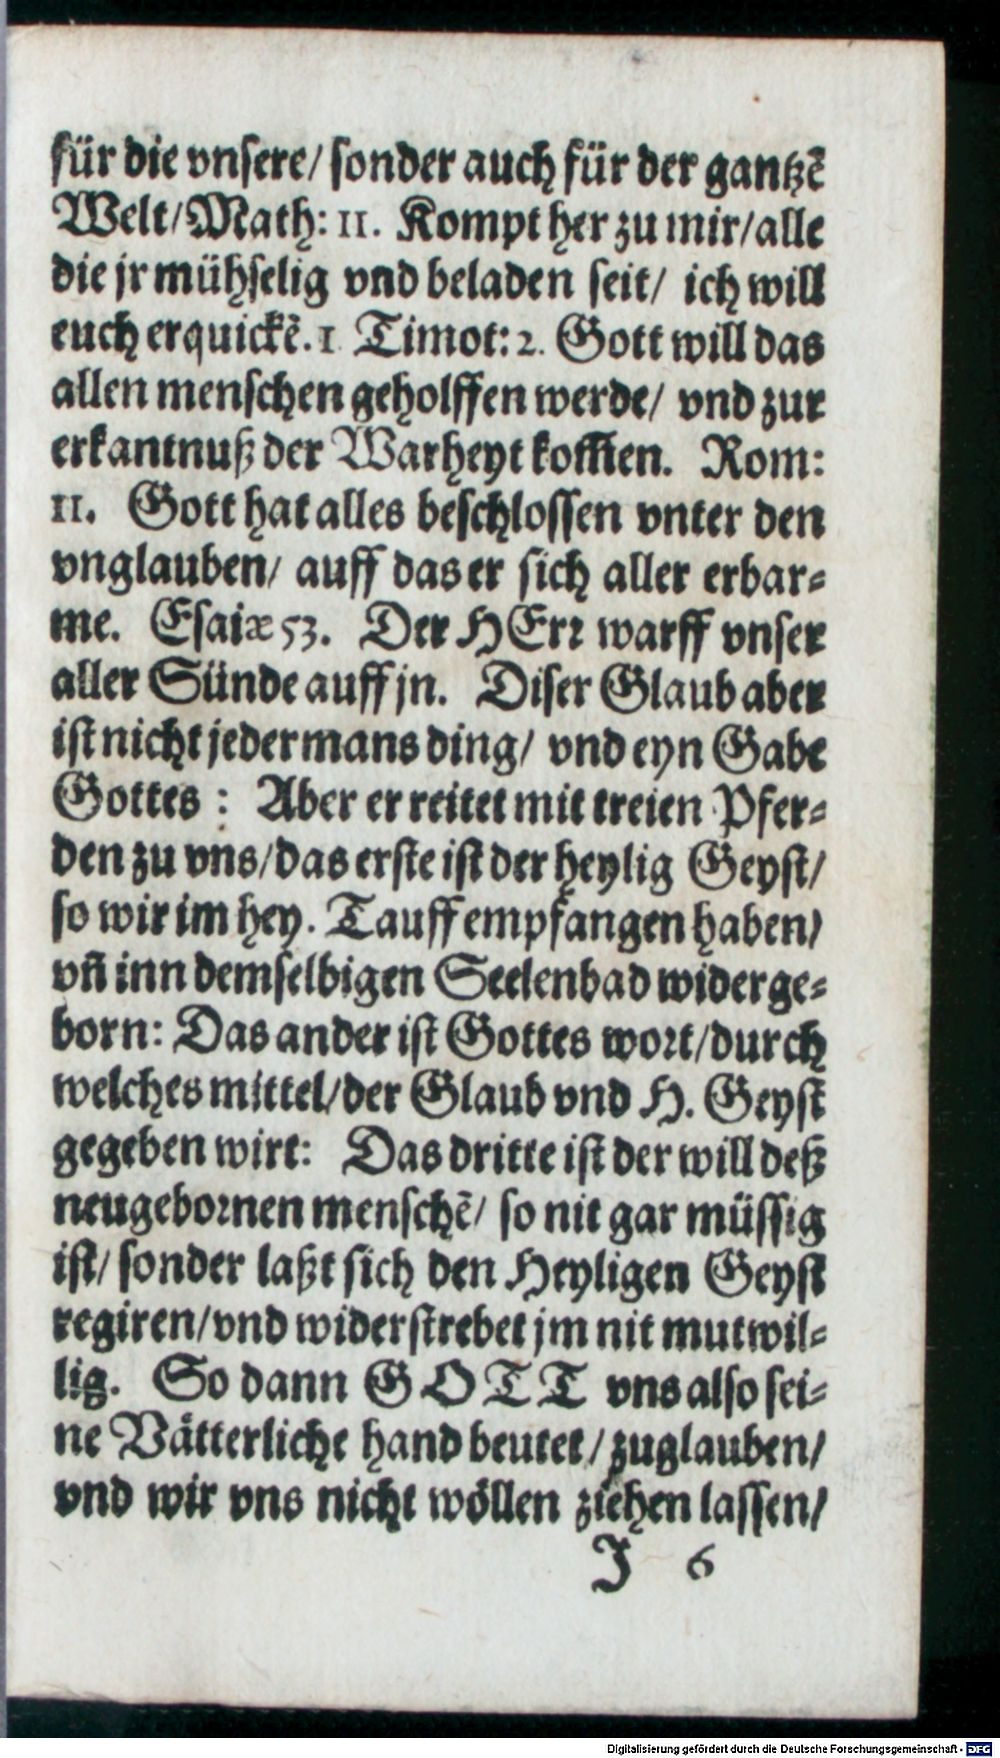 für die vnsere/ sonder auch für der gantzẽ
Welt/Math: 11. Kompt her zu mir/alle
die jr mühselig vnd beladen seit/ ich will
euch erquickẽ. 1 Timot: 2. Gott will das
allen menschen geholffen werde/ vnd zur
erkantnuß der Warheyt kom̃en. Rom:
11. Gott hat alles beschlossen vnter den
vnglauben/ auff das er sich aller erbar⸗
me. Esaiæ 53. Der HErr warff vnser
aller Sünde auff jn. Diser Glaub aber
ist nicht jedermans ding/ vnd eyn Gabe
Gottes : Aber er reitet mit treien Pfer⸗
den zu vns/das erste ist der heylig Geyst/
so wir im hey. Tauff empfangen haben/
vñ inn demselbigen Seelenbad widerge⸗
born: Das ander ist Gottes wort/durch
welches mittel/der Glaub vnd H. Geyst
gegeben wirt: Das dritte ist der will deß
neugebornen menschẽ/ so nit gar müssig
ist/ sonder laßt sich den Heyligen Geyst
regiren/vnd widerstrebet jm nit mutwil⸗
lig. So dann GOTT vns also sei⸗
ne Vätterliche hand beutet/ zuglauben/
vnd wir vns nicht wöllen ziehen lassen/
J 6
Digitalisierung gefördert durch die Deutsche Forschungsgemeinschaft - DFG